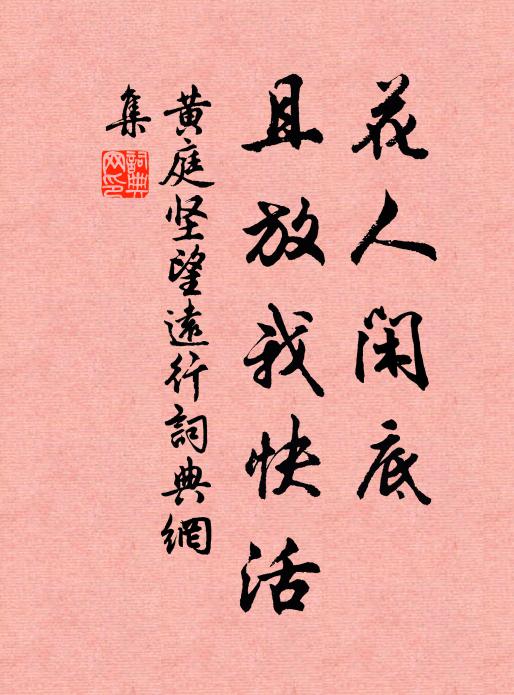 花人闲底
且放我快活
黄庭坚望遠行詞典網
集
詞典网印